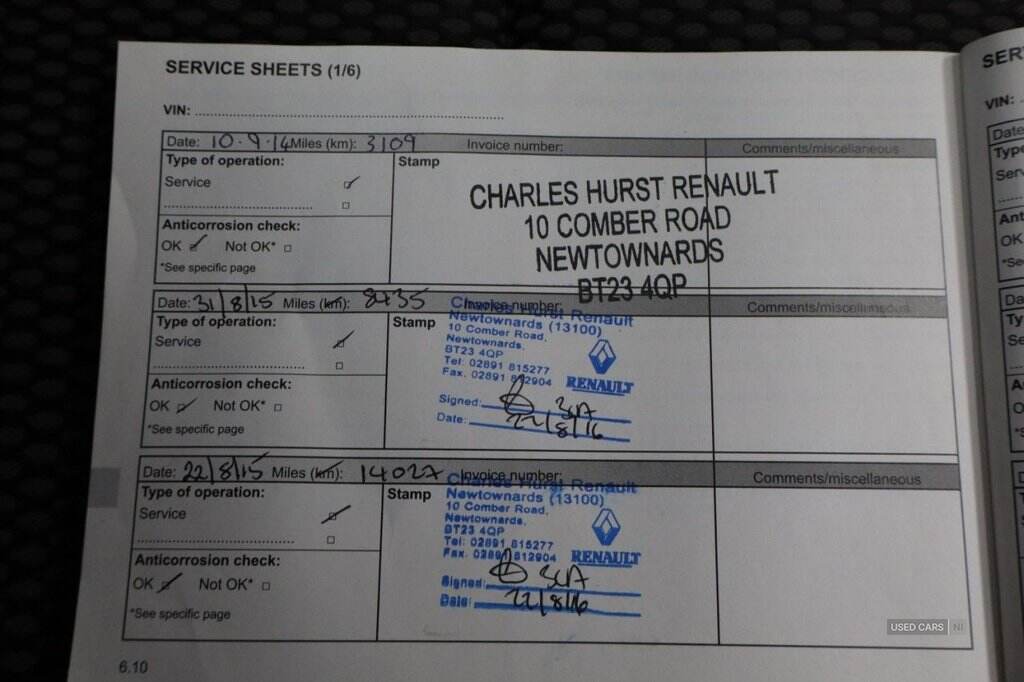 SERVICE SHEETS (1/6)
VIN:
Date: 10·9·14 Miles (km): 3109 Invoice number: Comments/miscellaneous
Type of operation: Stamp
Service
CHARLES HURST RENAULT
10 COMBER ROAD
NEWTOWNARDS
BT23 4QP
Anticorrosion check:
OK Not OK*
*See specific page
Date: 31/8/15 Miles (km): 8435 Invoice number: Comments/miscellaneous
Type of operation: Stamp
Service
Charles Hurst Renault
Newtownards (13100)
10 Comber Road,
Newtownards.
BT23 4QP
Tel: 02891 815277
Fax. 02891 812904
RENAULT
Signed:
Date: 22/8/16
Anticorrosion check:
OK Not OK*
*See specific page
Date: 22/8/15 Miles (km): 14027 Invoice number: Comments/miscellaneous
Type of operation: Stamp
Service
Charles Hurst Renault
Newtownards (13100)
10 Comber Road,
Newtownards.
BT23 4QP
Tel: 02891 815277
Fax. 02891 812904
RENAULT
Signed:
Date: 22/8/16
Anticorrosion check:
OK Not OK*
*See specific page
6.10
SER
VIN:
Date
Type
Serv
Ant
OK
*Se
USED CARS NI